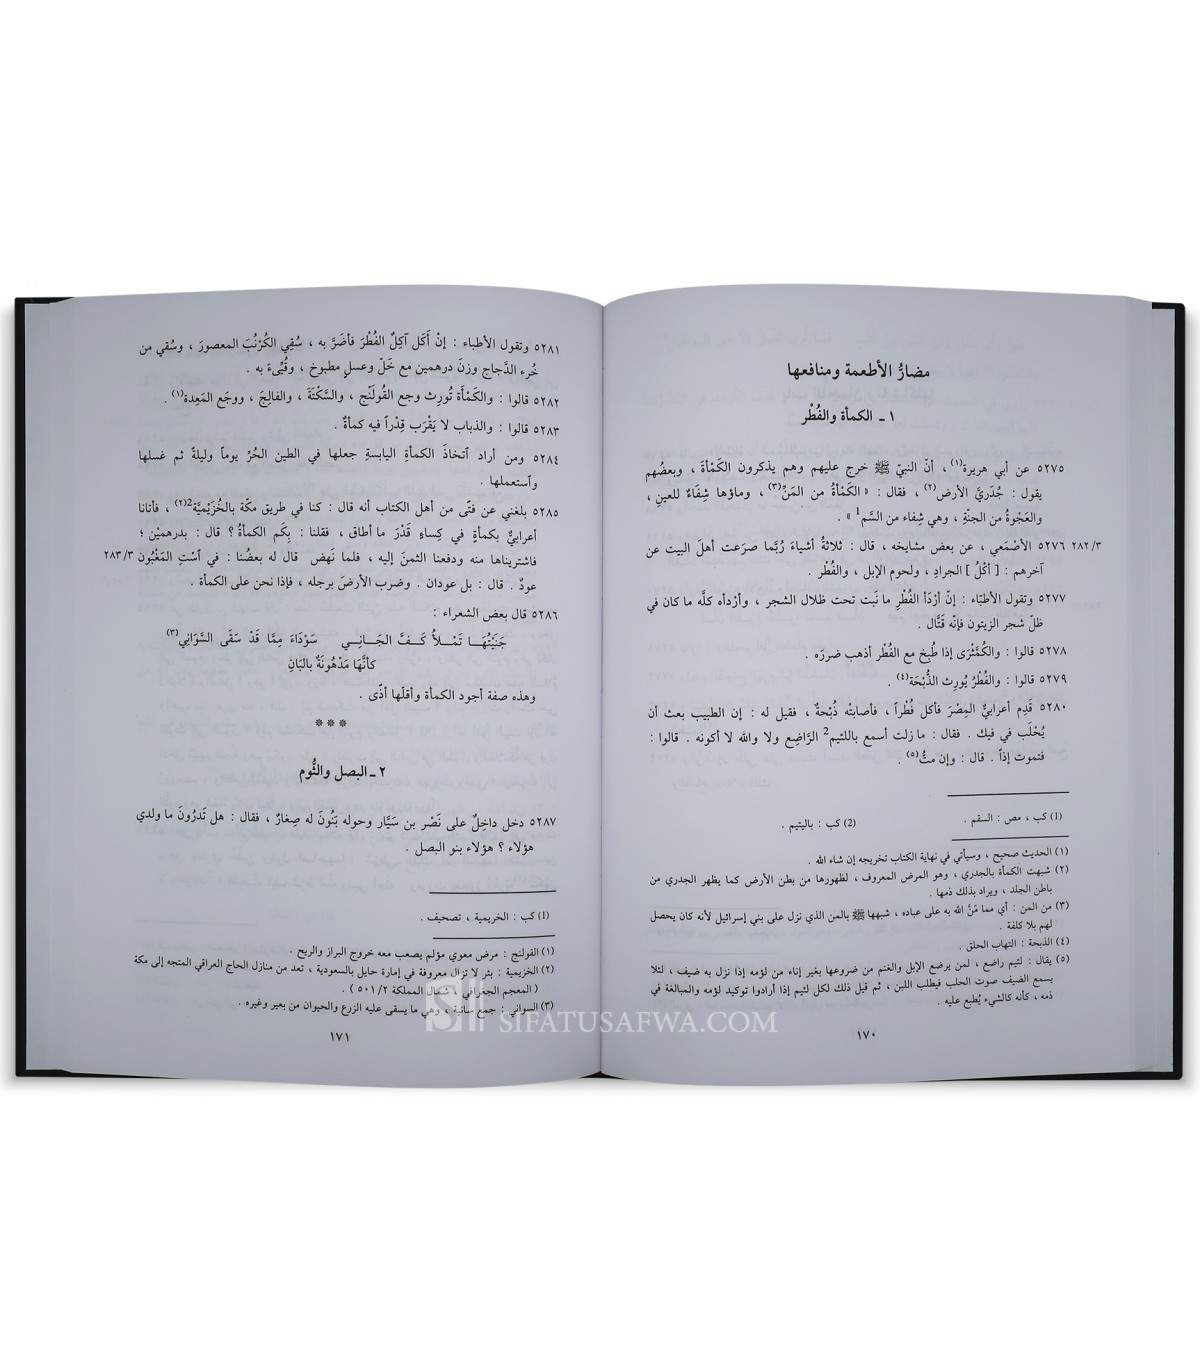 مضارُّ الأطعمة ومنافعها
١ ـ الكمأة والفُطْر
٥٢٧٥ عن أبي هريرة(١) ، أنّ النبيّ ﷺ خرج عليهم وهم يذكرون الكَمْأةَ ، وبعضُهم
يقول : جُدَريُّ الأرض(٢) ، فقال : « الكَمْأةُ من المَنِّ(٣) ، وماؤها شِفَاءٌ للعينِ ،
والعَجْوةُ من الجنّةِ ، وهي شِفاء من السَّم1 » .
٢٨٢/٣ ٥٢٧٦ الأصْمَعي ، عن بعض مشايخه ، قال : ثلاثةُ أشياءَ رُبَّما صرَعت أهلَ البيت عن
آخرهم : [ أكْلُ ] الجرادِ ، ولحوم الإبل ، والفُطْر .
٥٢٧٧ وتقول الأطبّاء : إنّ أرْدَأ الفُطْرِ ما نَبت تحت ظلال الشجر ، وأرْدأه كلَّه ما كان في
ظلّ شجر الزيتون فإنّه قَتَّال .
٥٢٧٨ قالوا : والكُمَّثرَى إذا طُبِخ مع الفُطْر أذهب ضررَه .
٥٢٧٩ قالوا : والفُطْرُ يُورِث الذُّبْحَة(٤) .
٥٢٨٠ قَدِم أعرابيٌّ المِصْرَ فأكل فُطْراً ، فأصابتْه ذُبْحةٌ ، فقيل له : إن الطبيب بعث أن
يُحْلَب في فيك . فقال : ما زلت أسمع باللئيم2 الرَّاضِع ولا والله لا أكونه . قالوا :
فتموت إذاً . قال : وإن متُّ(٥) .
(1) كب ، مص : السقم . (2) كب : باليتيم .
(١) الحديث صحيح ، وسيأتي في نهاية الكتاب تخريجه إن شاء الله .
(٢) شبهت الكمأة بالجدري ، وهو المرض المعروف ، لظهورها من بطن الأرض كما يظهر الجدري من
باطن الجلد ، ويراد بذلك ذمها .
(٣) من المن : أي مما مَنَّ الله به على عباده ، شبهها ﷺ بالمن الذي نزل على بني إسرائيل لأنه كان يحصل
لهم بلا كلفة .
(٤) الذبحة : التهاب الحلق .
(٥) يقال : لئيم راضع ، لمن يرضع الإبل والغنم من ضروعها بغير إناء من لؤمه إذا نزل به ضيف ، لئلا
يسمع الضيف صوت الحلب فيطلب اللبن ، ثم قيل ذلك لكل لئيم إذا أرادوا توكيد لؤمه والمبالغة في
ذمه ، كأنه كالشيء يُطبع عليه .
١٧٠
٥٢٨١ وتقول الأطباء : إنْ أَكَل آكِلٌ الفُطْرَ فأضَرَّ به ، سُقِي الكُرْنُبَ المعصورَ ، وسُقي من
خُرء الدَّجاج وزنَ درهمين مع خَلّ وعسلٍ مطبوخ ، وقُيِّءَ به .
٥٢٨٢ قالوا : والكَمْأَة تُورِث وجع القُولَنْج ، والسَّكْتَةَ ، والفالِجَ ، ووجَع المَعِدة(١) .
٥٢٨٣ قالوا : والذباب لا يَقْرَب قِدْراً فيه كمأةٌ .
٥٢٨٤ ومن أراد ٱتخاذَ الكمأةِ اليابسةِ جعلها في الطين الحُرِّ يوماً وليلةً ثم غسلها
وٱستعملها .
٥٢٨٥ بلغني عن فتًى من أهل الكتاب أنه قال : كنا في طريق مكّة بالخُزَيْميَّة2(٢) ، فأتانا
أعرابيٌّ بكمأةٍ في كِساءٍ قَدْرَ ما أطاق ، فقلنا : بِكَم الكمأةُ ؟ قال : بدرهميْن ؛
فاشتريناها منه ودفعنا الثمنَ إليه ، فلما نَهض قال له بعضُنا : في ٱسْتِ المَغْبُون ٢٨٣/٣
عودٌ . قال : بل عودان . وضرب الأرضَ برجله ، فإذا نحن على الكمأة .
٥٢٨٦ قال بعض الشعراء :
جَنَيْتُهَـا تَمْـلأُ كَـفَّ الجَـانِـي سَوْدَاءَ مِمَّا قَدْ سَقَى السَّوَانِي(٣)
كأنَّهَا مَدْهُونَةٌ بالبَانِ
وهذه صفة أجود الكمأة وأقلّها أذًى .
***
٢ ـ البصل والثُّوم
٥٢٨٧ دخل داخِلٌ على نَصْر بن سَيَّار وحوله بَنُونَ له صِغارٌ ، فقال : هل تَدرُونَ ما ولدي
هؤلاء ؟ هؤلاء بنو البصل .
(1) كب : الخريمية ، تصحيف .
(١) القولنج : مرض معوي مؤلم يصعب معه خروج البراز والريح .
(٢) الخزيمية : بئر لا تزال معروفة في إمارة حايل بالسعودية ، تعد من منازل الحاج العراقي المتجه إلى مكة
( المعجم الجغرافي ، شمال المملكة ٥٠١/٢ ) .
(٣) السواني : جمع سانية ، وهي ما يسقى عليه الزرع والحيوان من بعير وغيره .
١٧١
SIFATUSAFWA.COM